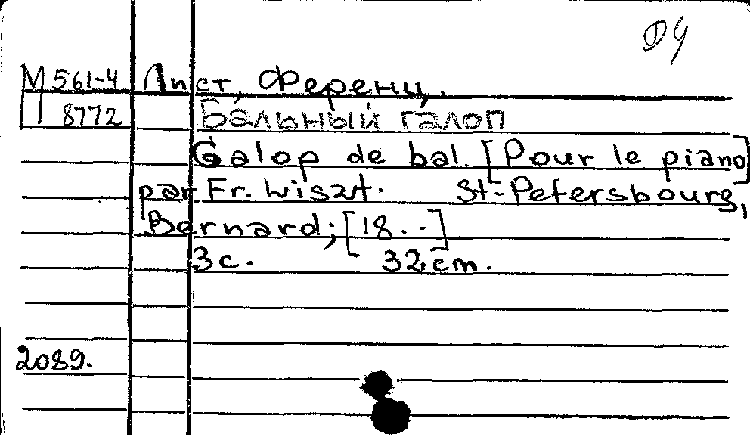 М 561-4 Лист, Ференц.
8772 Бальный галоп
Galop de bal. [Pour le piano]
par Fr. Liszt. St-Petersbourg,
Bernard; [18..]
3 с. 32 cm.
2089.